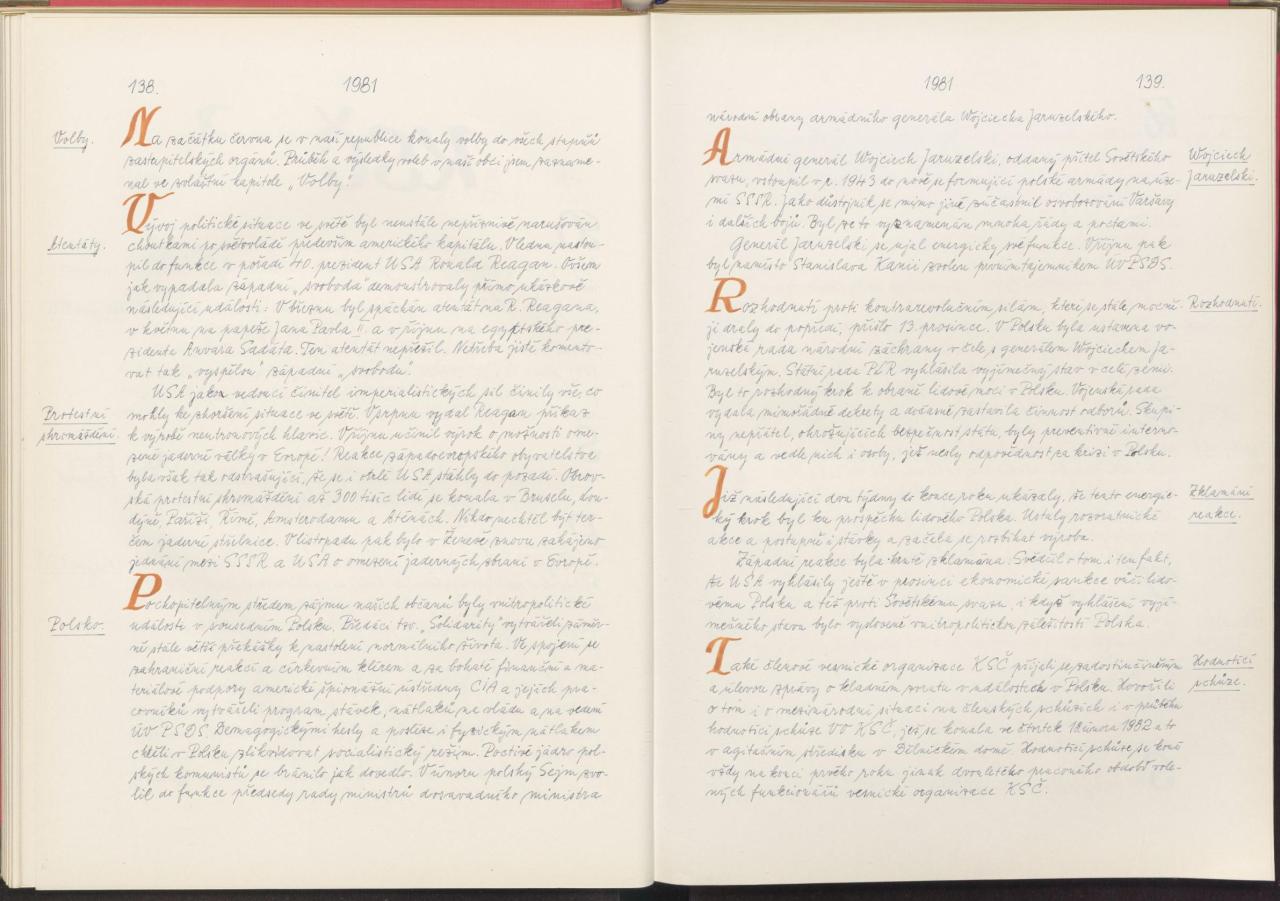 138.
1981
Volby.
Na začátku června se v naší republice konaly volby do všech stupňů
zastupitelských orgánů. Průběh a výsledky voleb v naší obci jsem zazname-
nal ve zvláštní kapitole „Volby“.
Vývoj politické situace ve světě byl neustále nepříznivě narušován
Atentáty.
choutkami po světovládě především amerického kapitálu. V lednu nastou-
pil do funkce v pořadí 40. prezident USA Ronald Reagan. Ovšem
jak vypadala západní „svoboda“ demonstrovaly přímo ukázkově
následující události: V březnu byl spáchán atentát na R. Reagana,
v květnu na papeže Jana Pavla II. a v říjnu na egyptského pre-
zidenta Anvara Sadáta. Ten atentát nepřežil. Netřeba jistě komento-
vat tak „vyspělou“ západní „svobodu“.
USA jakou vedoucí činitel imperialistických sil činily vše, co
Protestní
shromáždění.
mohly ke zhoršení situace ve světě. V srpnu vydal Reagan příkaz
k výrobě neutronových hlavic. V říjnu učinil výrok o možnosti ome-
zené jaderné války v Evropě! Reakce západoevropského obyvatelstva
byla však tak odstrašující, že se i otrlé USA stáhly do pozadí. Obrov-
ská protestní shromáždění až 300 tisíc lidí se konala v Bruselu, Lon-
dýně, Paříži, Římě, Amsterodamu a Aténách. Nikdo nechtěl být ter-
čem jaderné střelnice. V listopadu pak bylo v Ženevě znovu zahájeno
jednání mezi SSSR a USA o omezení jaderných zbraní v Evropě.
Pochopitelným středem zájmu našich občanů byly vnitropolitické
Polsko.
události v sousedním Polsku. Předáci tzv. „Solidarity“ vytvářeli záměr-
ně stále větší překážky k nastolení normálního života. Ve spojení se
zahraniční reakcí a církevním klérem a za bohaté finanční a ma-
teriálové podpory americké špionážní ústředny CIA a jejích pra-
covníků vytvářeli program stávek, nátlaků na vládu a na vedení
ÚV PSDS. Demagogickými hesly a posléze i fyzickým nátlakem
chtěli v Polsku zlikvidovat socialistický režim. Poctivé jádro pol-
ských komunistů se bránilo jak dovedlo. V únoru polský Sejm zvo-
lil do funkce předsedy rady ministrů dosavadního ministra
1981
139.
národní obrany armádního generála Wojciecha Jaruzelského.
Armádní generál Wojciech Jaruzelski, oddaný přítel Sovětského
Wojciech
Jaruzelski.
svazu, vstoupil v r. 1943 do nově se formující polské armády na úze-
mí SSSR. Jako důstojník se mimo jiné zúčastnil osvobozování Varšavy
i dalších bojů. Byl za to vyznamenán mnoha řády a poctami.
Generál Jaruzelski se ujal energicky své funkce. V říjnu pak
byl namísto Stanislava Kanii zvolen prvním tajemníkem ÚV PSDS.
Rozhodnutí proti kontrarevolučním silám, které se stále mocně-
Rozhodnutí.
ji draly do popředí, přišlo 13. prosince. V Polsku byla ustavena vo-
jenská rada národní záchrany v čele s generálem Wojciechem Ja-
ruzelským. Státní rada PLR vyhlásila vyjímečný stav v celé zemi.
Byl to rozhodný krok k obraně lidové moci v Polsku. Vojenská rada
vydala mimořádné dekrety a dočasně zastavila činnost odborů. Skupi-
ny nepřátel, ohrožujících bezpečnost státu, byly preventivně interno-
vány a vedle nich i osoby, jež nesly odpovědnost za krizi v Polsku.
Již následující dva týdny do konce roku ukázaly, že tento energic-
Zklamání
reakce.
ký krok byl ku prospěchu lidového Polska. Ustaly rozvratnické
akce a postupně i stávky a začala se rozbíhat výroba.
Západní reakce byla krutě zklamána. Svědčil o tom i ten fakt,
že USA vyhlásily ještě v prosinci ekonomické sankce vůči lido-
vému Polsku a též proti Sovětskému svazu, i když vyhlášení vyjí-
mečného stavu bylo vysloveně vnitropolitickou záležitostí Polska.
Také členové vesnické organizace KSČ přijali se zadostiučiněním
Hodnotící
schůze.
a úlevou zprávy o kladném zvratu v událostech v Polsku. Hovořili
o tom i o mezinárodní situaci na členských schůzích i v průběhu
hodnotící schůze VO KSČ, jež se konala ve čtvrtek 18. února 1982 a to
v agitačním středisku v Dělnickém domě. Hodnotící schůze se koná
vždy na konci prvého roku jinak dvouletého pracovního období vole-
ných funkcionářů vesnické organizace KSČ.